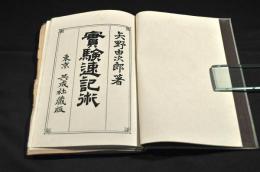 矢野由次郎著
實驗速記術
東京 共成社藏版